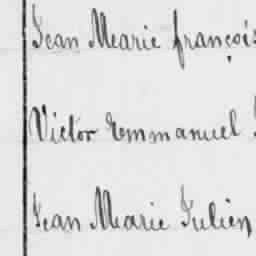 Jean Mearie françois
Victor Emmanuel
Jean Mearie Julien